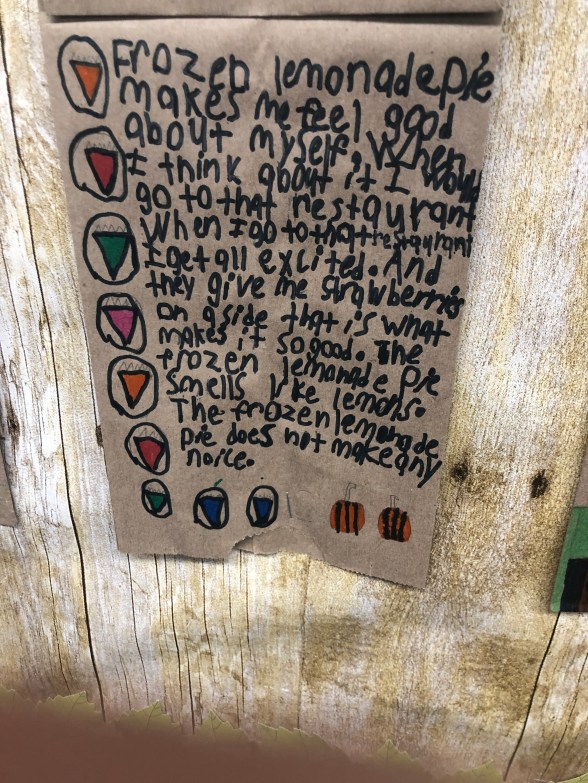 Frozen lemonade Pie
makes me feel good
about myself, When
I think about it I would
go to that restaurant
When I go to that restaurant
I get all excited. And
they give me strawberris
on a side that is what
makes it so good. The
frozen lemonade Pie
smells like lemons.
The frozen lemonade
pie does not make any
noice.